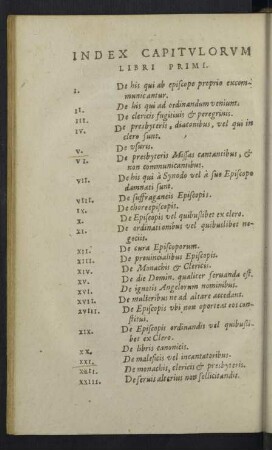 INDEX CAPITVLORVM
LIBRI PRIMI.
I. De his qui ab episcopo proprio excom-
municantur.
II. De his qui ad ordinandum veniunt.
III. De clericis fugitiuis & peregrinis.
IV. De presbyteris, diaconibus, vel qui in
clero sunt.
V. De vsuris.
VI. De presbyteris Missas cantantibus, &
non communicantibus.
VII. De his qui à Synodo vel à suo Episcopo
damnati sunt.
VIII. De suffraganeis Episcopis.
IX. De choreepiscopis.
X. De Episcopis vel quibuslibet ex clero.
XI. De ordinationibus vel quibuslibet ne-
gociis.
XII. De cura Episcoporum.
XIII. De prouincialibus Episcopis.
XIV. De Monachis & Clericis.
XV. De die Domin. qualiter seruanda est.
XVI. De ignotis Angelorum nominibus.
XVII. De mulieribus ne ad altare accedant.
XVIII. De Episcopis vbi non oporteat eos con-
stitui.
XIX. De Episcopis ordinandis vel quibusli-
bet ex Clero.
XX. De libris canonicis.
XXI. De maleficis vel incantatoribus.
XXII. De monachis, clericis & presbyteris.
XXIII. De seruis alterius non sollicitandis.